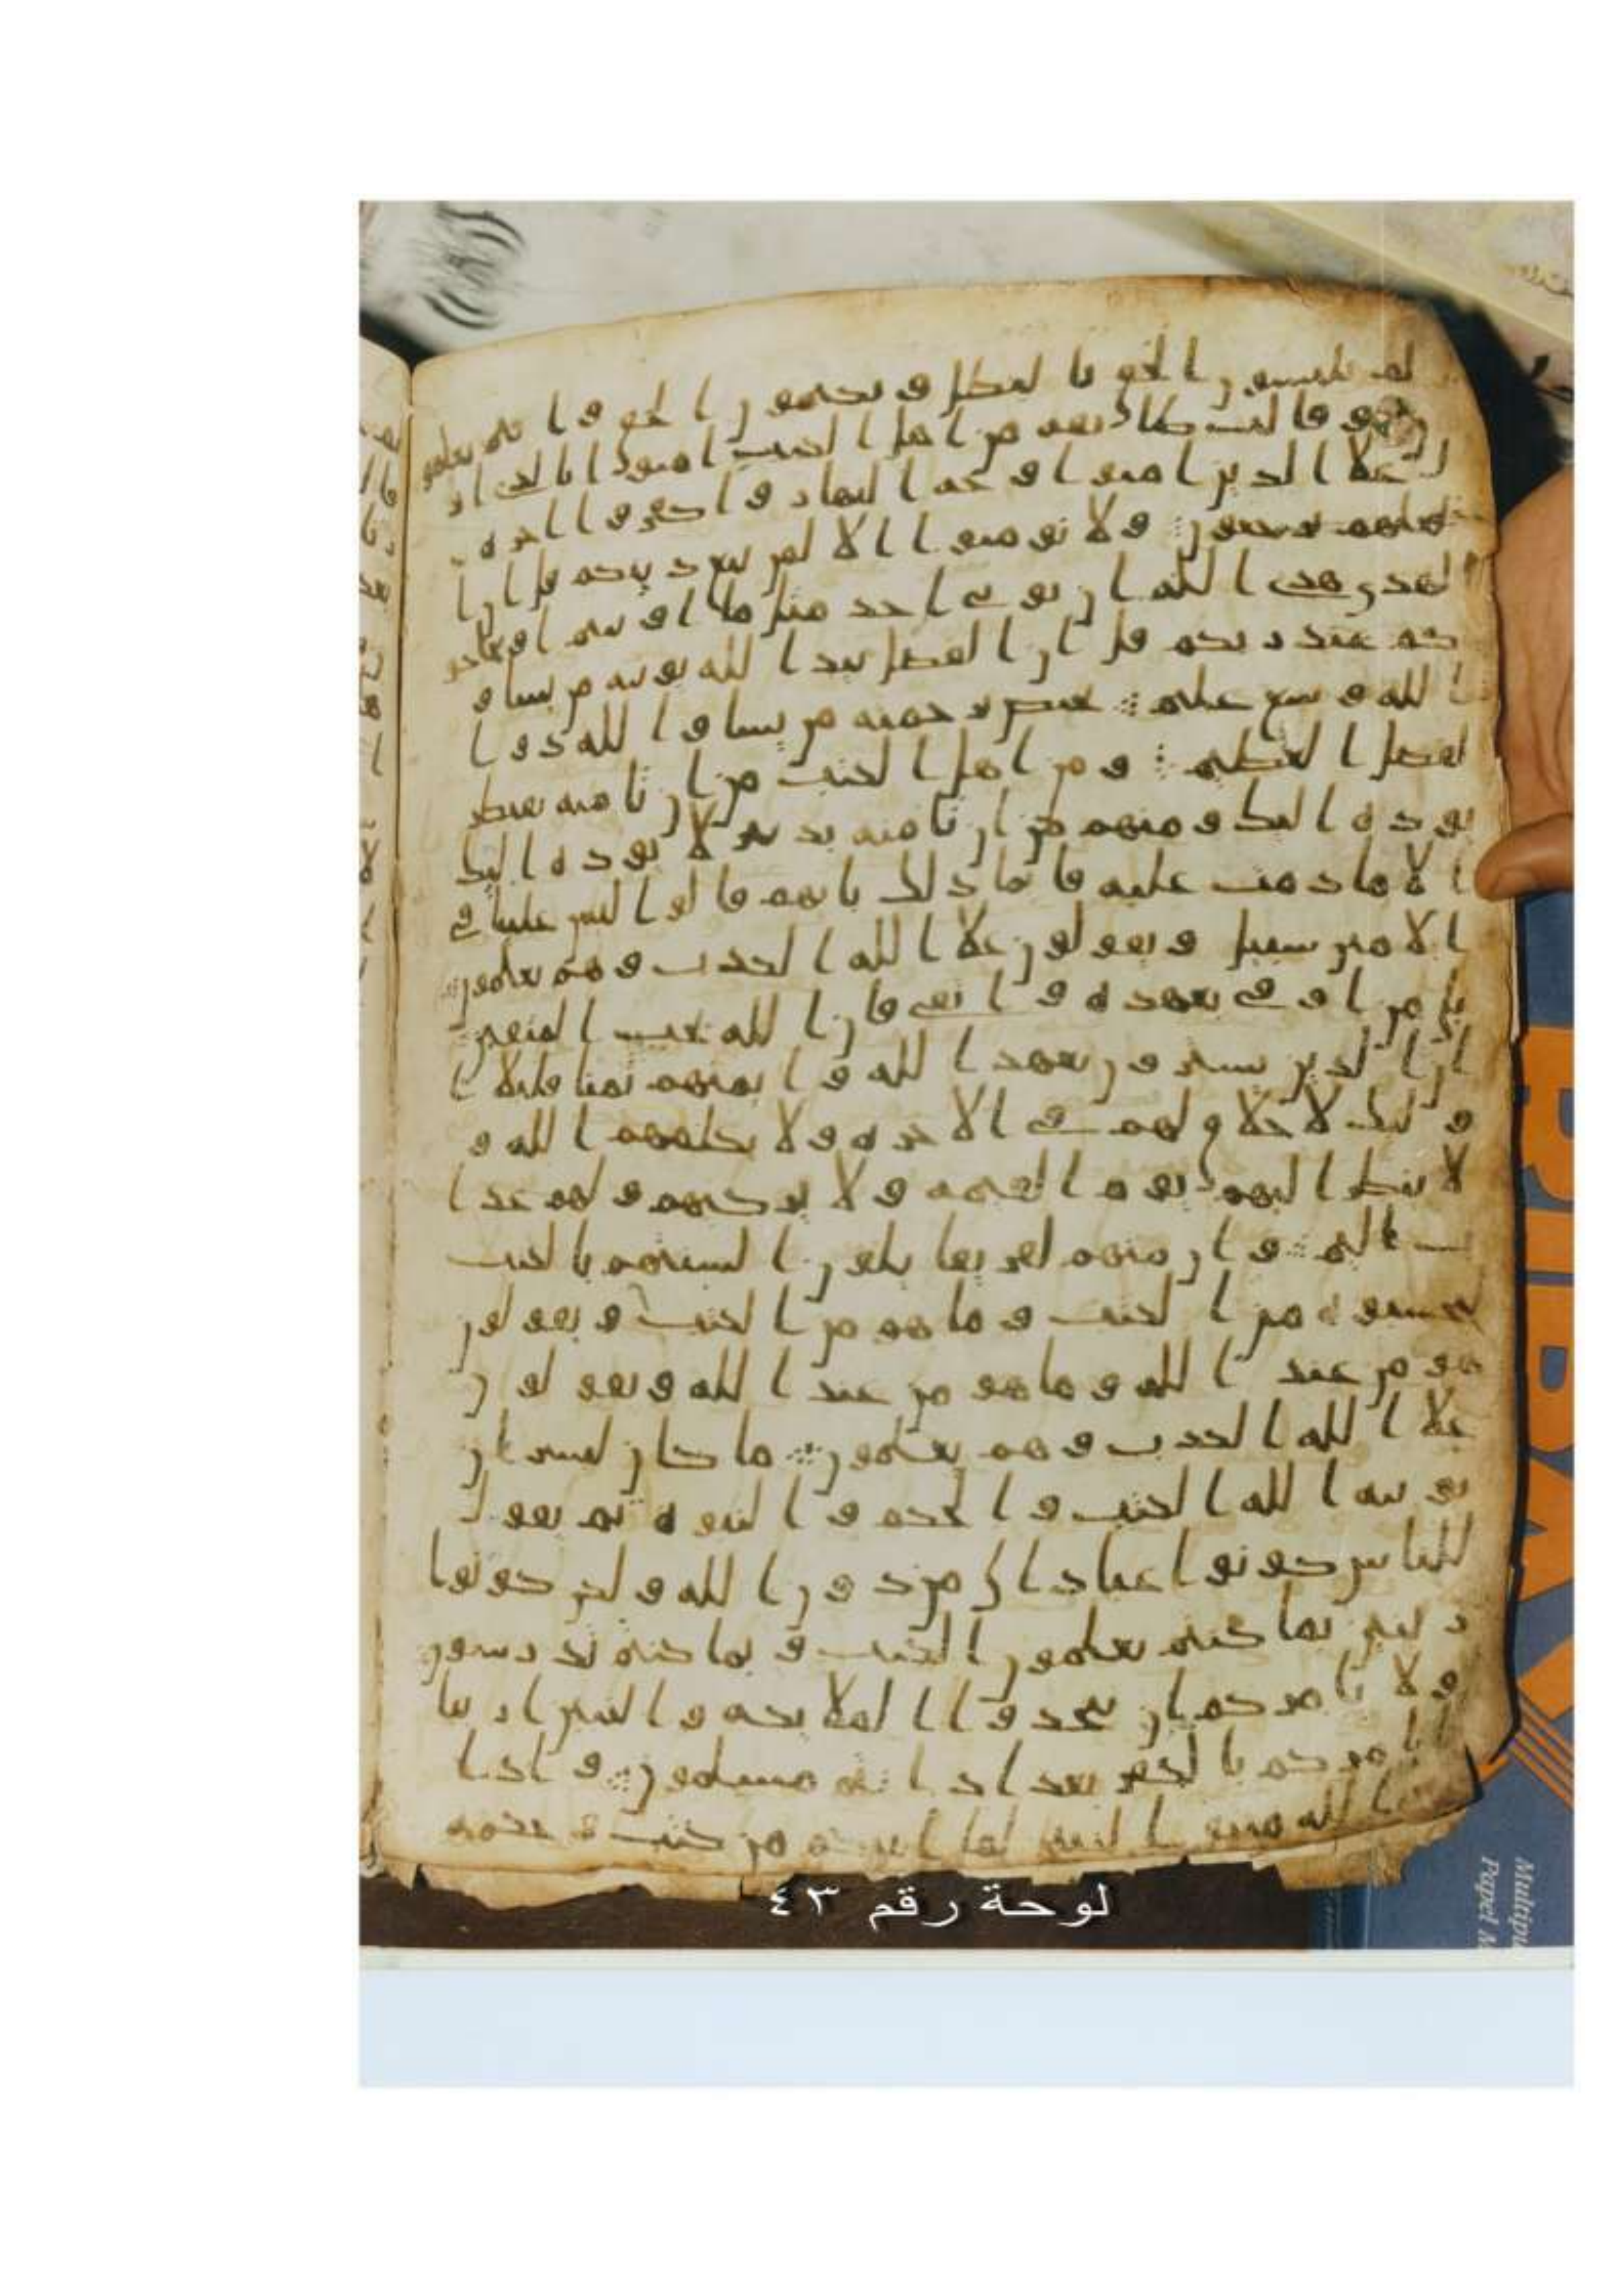 لم تلبسون الحق بالبطل وتكتمون الحق وانتم تعلمو
ن وقالت طائفة من اهل الكتب امنوا بالذي ا
نزل علا الذين امنوا وجه النهار واكفروا اخره
لعلهم يرجعون ولا تومنوا الا لمن تبع دينكم قل ان ا
لهدى هدى الله ان يوتى احد مثل ما اوتيتم او يحاجو
كم عند ربكم قل ان الفضل بيد الله يوتيه من يشا و
الله وسع عليم يختص برحمته من يشا والله ذو ا
لفضل العظيم ومن اهل الكتب من ان تامنه بقنطر
يوده اليك ومنهم من ان تامنه بدينر لا يوده اليك
الا ما دمت عليه قاما ذلك بانهم قالوا ليس علينا في
الامين سبيل ويقولون علا الله الكذب وهم يعلمون
بلى من اوفى بعهده واتقى فان الله يحب المتقين
ان الذين يشترون بعهد الله وايمنهم ثمنا قليلا ا
وليك لا خلاق لهم في الاخرة ولا يكلمهم الله و
لا ينظر اليهم يوم القيمة ولا يزكيهم ولهم عذا
ب اليم وان منهم لفريقا يلون السنتهم بالكتب
لتحسبوه من الكتب وما هو من الكتب ويقولون
هو من عند الله وما هو من عند الله ويقولون
علا الله الكذب وهم يعلمون ما كان لبشر ان
يوتيه الله الكتب والحكم والنبوة ثم يقول
للناس كونوا عبادا لي من دون الله ولكن كونوا
ربنين بما كنتم تعلمون الكتب وبما كنتم تدرسون
ولا يامركم ان تتخذوا الملايكة والنبين اربابا
ايامركم بالكفر بعد اذ انتم مسلمون واذ ا
خذ الله ميثق النبين لما اتيتكم من كتب وحكمة
لوحة رقم ٤٣
Multipu
Papel M